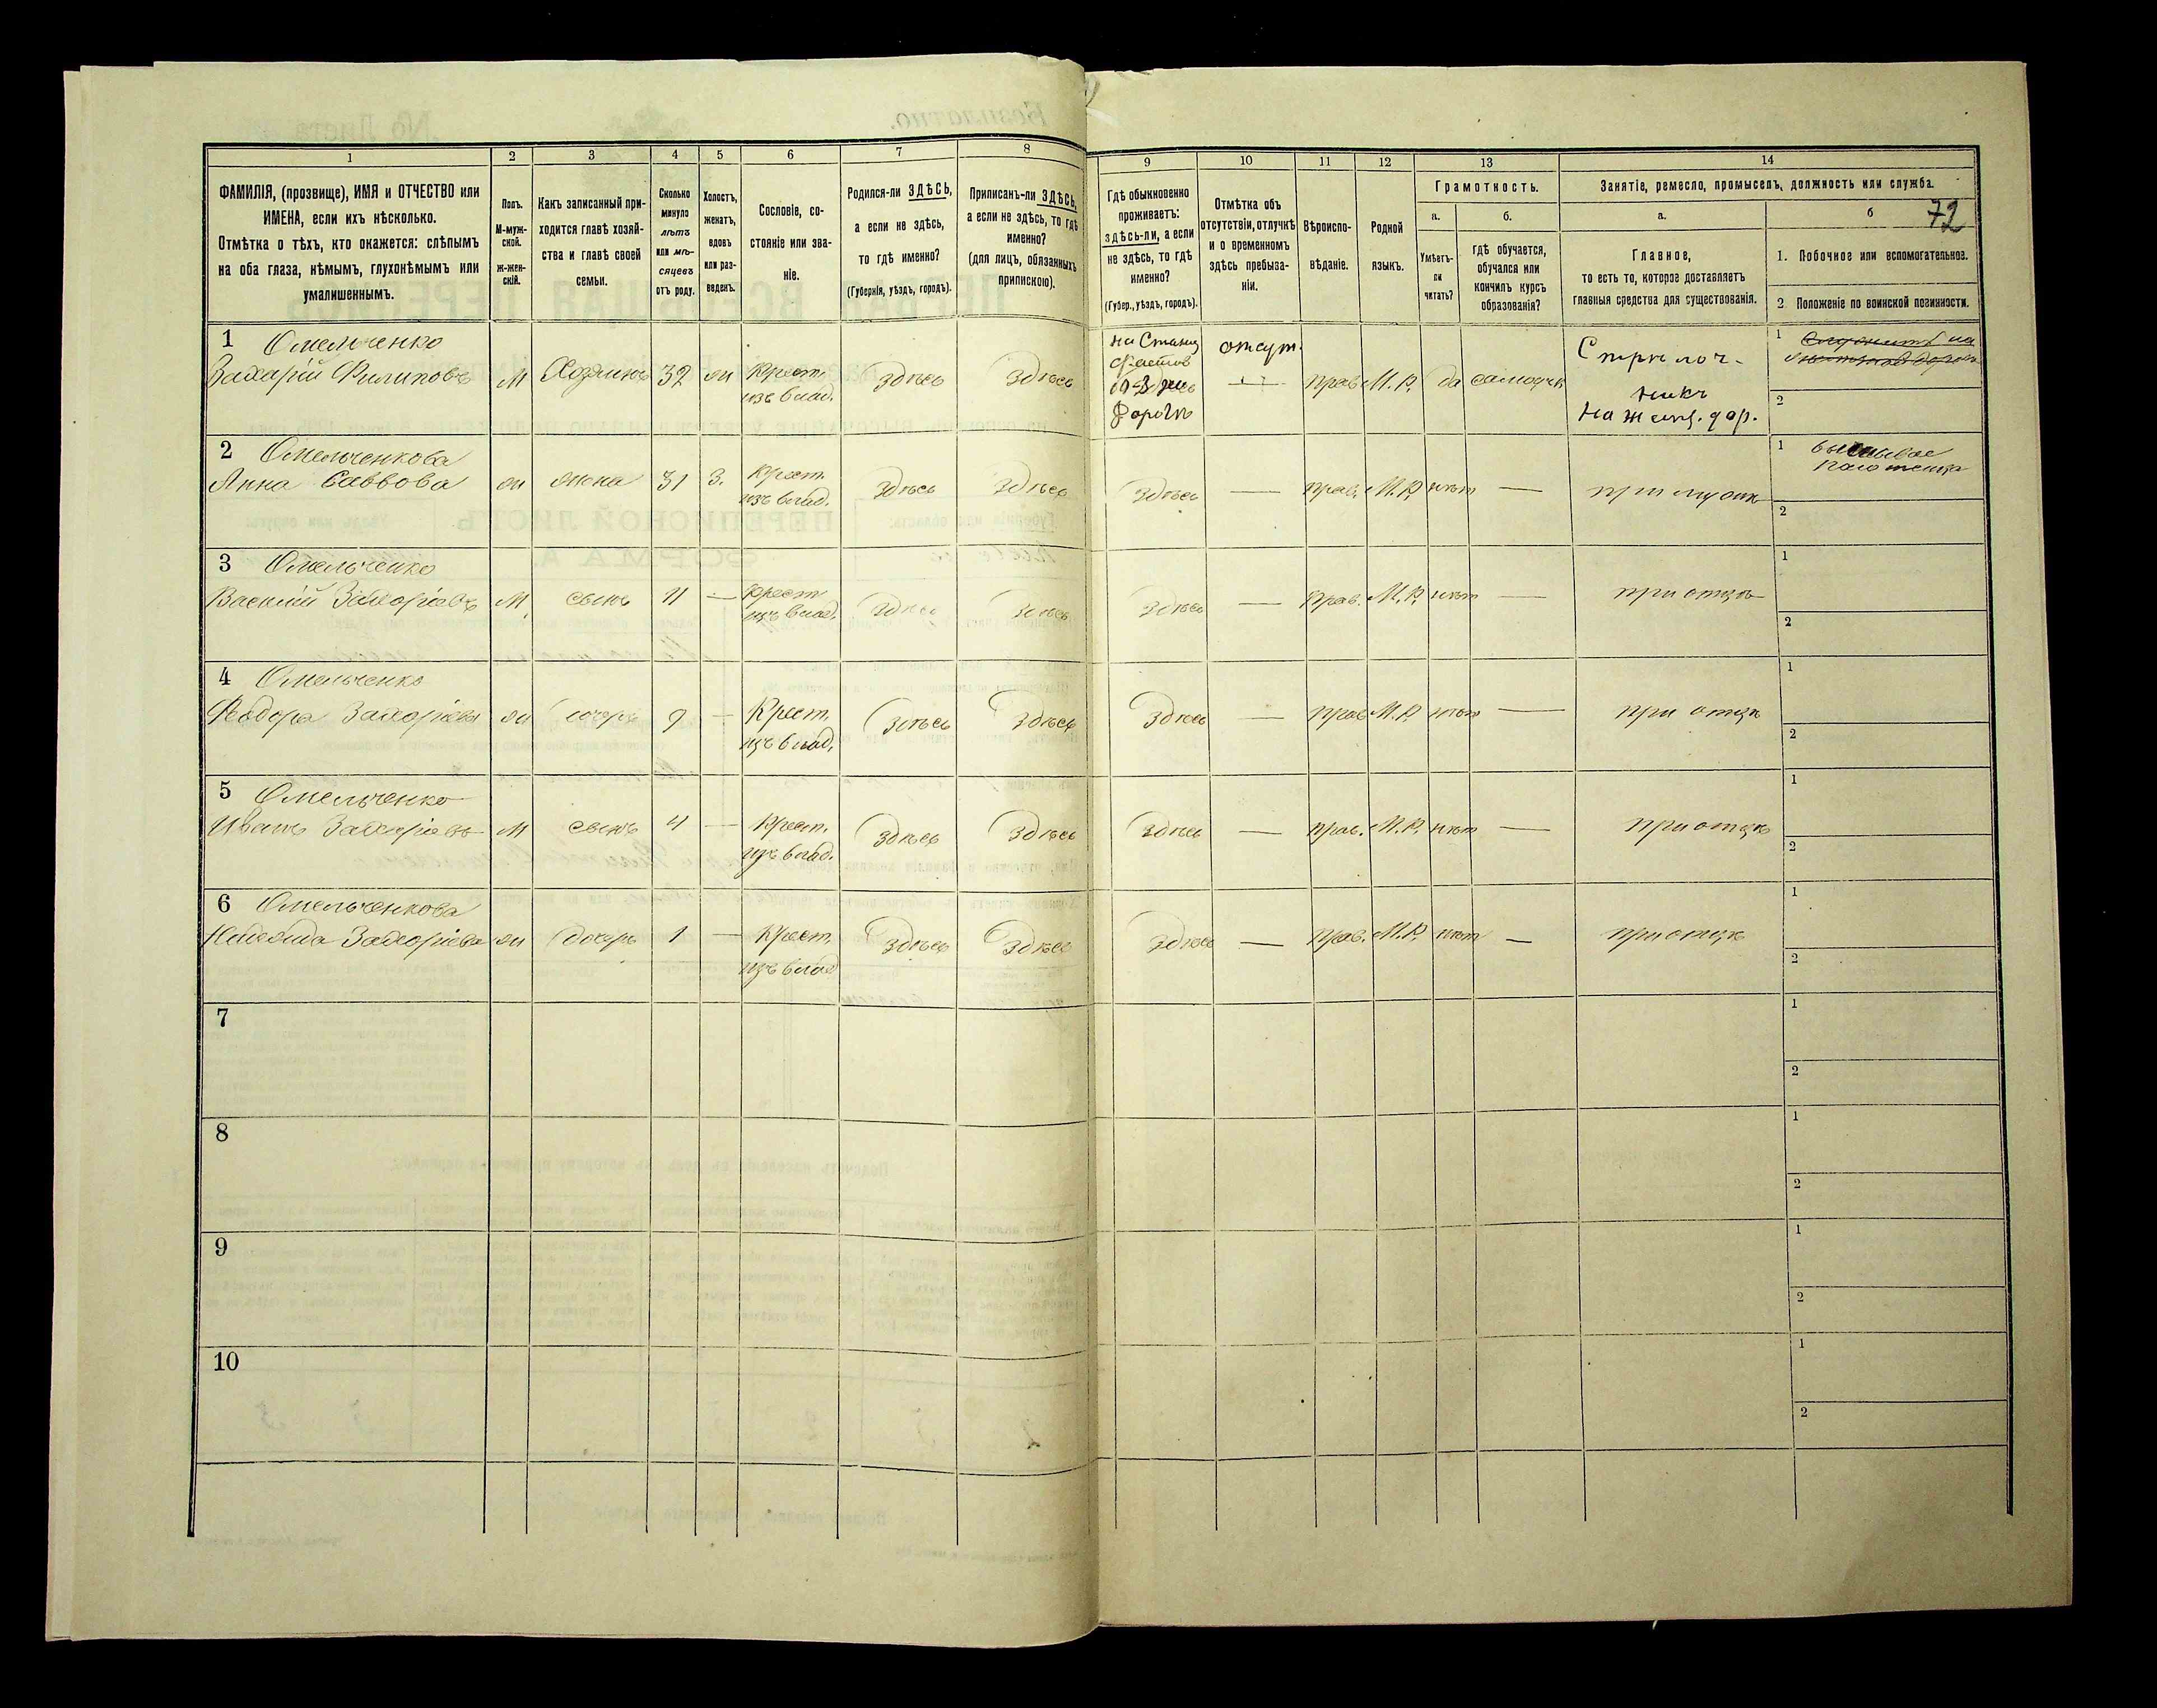 72
1 2 3 4 5 6 7 8 9 10 11 12 13 14
ФАМИЛІЯ, (прозвище), ИМЯ и ОТЧЕСТВО или
ИМЕНА, если ихъ нѣсколько.
Отмѣтка о тѣхъ, кто окажется: слѣпымъ
на оба глаза, нѣмымъ, глухонѣмымъ или
умалишеннымъ.
Полъ.
М-муж-
ской.
ж-жен-
скій.
Какъ записанный при-
ходится главѣ хозяй-
ства и главѣ своей
семьи.
Сколько
минуло
лѣтъ
или мѣ-
сяцевъ
отъ роду.
Холостъ,
женатъ,
вдовъ
или раз-
веденъ.
Сословіе, со-
стояніе или зва-
ніе.
Родился-ли ЗДѢСЬ,
а если не здѣсь,
то гдѣ именно?
(Губернія, уѣздъ, городъ).
Приписанъ-ли ЗДѢСЬ,
а если не здѣсь, то гдѣ
именно?
(для лицъ, обязанныхъ
припискою).
Гдѣ обыкновенно
проживаетъ:
здѣсь-ли, а если
не здѣсь, то гдѣ
именно?
(Губер., уѣздъ, городъ).
Отмѣтка объ
отсутствіи, отлучкѣ
и о временномъ
здѣсь пребыва-
ніи.
Вѣроиспо-
вѣданіе.
Родной
языкъ.
Грамотность.
а.
Умѣетъ-
ли
читать?
б.
гдѣ обучается,
обучался или
кончилъ курсъ
образованія?
Занятіе, ремесло, промыселъ, должность или служба.
а.
Главное,
то есть то, которое доставляетъ
главныя средства для существованія.
б
1. Побочное или вспомогательное.
2 Положеніе по воинской повинности.
1 Омельченко
Захарій Филиповъ м Хозяинъ 32 ж Крест.
изъ влад. Здѣсь Здѣсь
на Станц
Фастов
Дорогѣ
отсут. прав. М. Р. да самоучк
Стрѣлоч-
никъ
на желѣз. дор.
1
2
2 Омельченкова
Анна Саввова ж жена 31 З. Крест.
изъ влад. Здѣсь Здѣсь Здѣсь — прав. М. Р. нѣтъ — при мужѣ
1
2
3 Омельченко
Василій Захаріевъ М сынъ 11 — Крест
изъ влад. Здѣсь Здѣсь Здѣсь — прав. М. Р. нѣт — при отцѣ
1
2
4 Омельченко
Захаріева ж дочерь 9 — Крест.
изъ влад. Здѣсь Здѣсь Здѣсь — прав М. Р. нѣт — при отцѣ
1
2
5 Омельченко
Иванъ Захаріевъ М сынъ 4 — Крест.
изъ влад. Здѣсь Здѣсь Здѣсь — прав. М. Р. нѣт — при отцѣ
1
2
6 Омельченкова
Надежда Захаріева ж дочерь 1 — Крест.
изъ влад Здѣсь Здѣсь Здѣсь — прав. М. Р. нѣт — при отцѣ
1
2
7
1
2
8
1
2
9
1
2
10
1
2